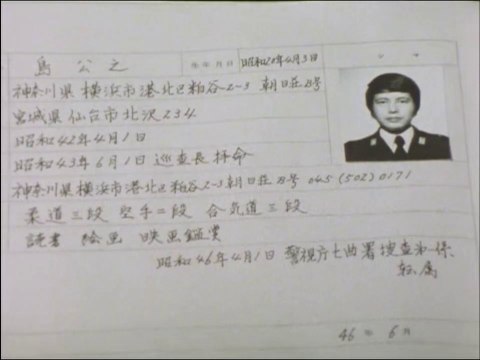 島 公之 生年月日 昭和20年4月3日
神奈川県 横浜市港北区粕谷2-3 朝日荘B号
宮城県 仙台市北沢234
昭和42年4月1日
昭和43年6月1日 巡査長 拝命
神奈川県横浜市港北区粕谷2-3朝日荘 B号 045 (502) 0171
柔道三段 空手二段 合気道三段
読書 絵画 映画鑑賞
昭和46年4月1日 警視庁七曲署捜査一係
転属
46年 6月